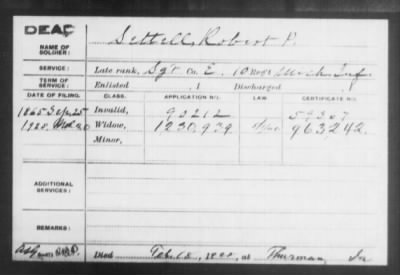 DEAD
NAME OF SOLDIER: Settell, Robert P.
SERVICE: Late rank, Sgt Co. E, 10 Reg't Mich Inf
TERM OF SERVICE: Enlisted , 1 Discharged , 1
DATE OF FILING. CLASS. APPLICATION NO. LAW. CERTIFICATE NO.
1865 Sep. 25 Invalid, 93212 59307
Widow, 1230.939 963242.
Minor,
ADDITIONAL SERVICES:
REMARKS:
Died Feb. , at Thurman, Ia